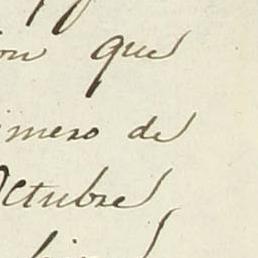 on que
imero de
Octubre